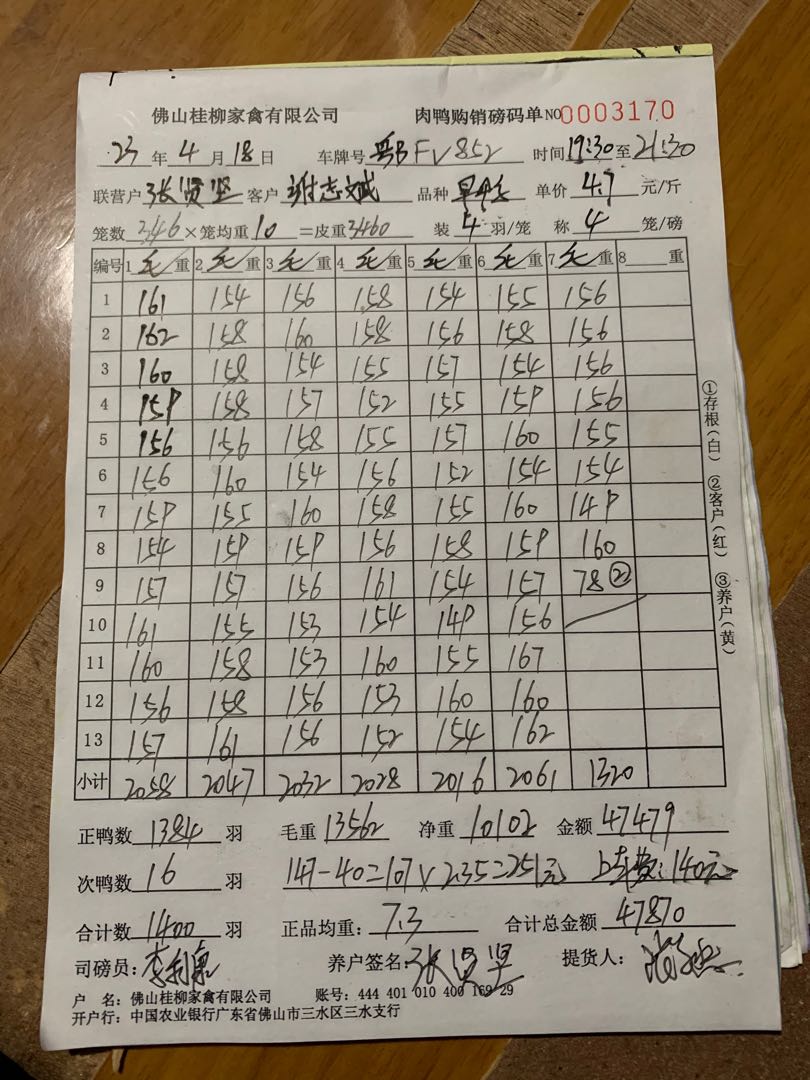 佛山桂柳家禽有限公司 肉鸭购销磅码单 NO 0003170
23 年 4 月 18 日 车牌号 粤BFV852 时间 19:30 至 21:30
联营户 张贤坚 客户 谢志斌 品种 单价 4.7 元/斤
笼数 346 ×笼均重 10 =皮重 3460 装 4 羽/笼 称 4 笼/磅
编号 1 毛 重 2 毛 重 3 毛 重 4 毛 重 5 毛 重 6 毛 重 7 毛 重 8 重
1 161 154 156 158 154 155 156
2 162 158 160 158 156 158 156
3 160 158 154 155 157 154 156
4 159 158 157 152 155 159 156
5 156 156 158 155 157 160 155
6 156 160 154 156 152 154 154
7 159 155 160 158 155 160 149
8 154 159 159 156 158 159 160
9 157 157 156 161 154 157 78 ㉒
10 161 155 153 154 149 156
11 160 158 153 160 155 167
12 156 158 156 153 160 160
13 157 161 156 152 154 162
小计 2058 2047 2032 2028 2016 2061 1320
①存根(白) ②客户(红) ③养户(黄)
正鸭数 1384 羽 毛重 13562 净重 10102 金额 47479
次鸭数 16 羽 147-40=107×2.35=251元 上车费:140元
合计数 1400 羽 正品均重: 7.3 合计总金额 47870
司磅员: 养户签名: 张贤坚 提货人:
户 名: 佛山桂柳家禽有限公司 账号: 444 401 010 400 169 29
开户行: 中国农业银行广东省佛山市三水区三水支行